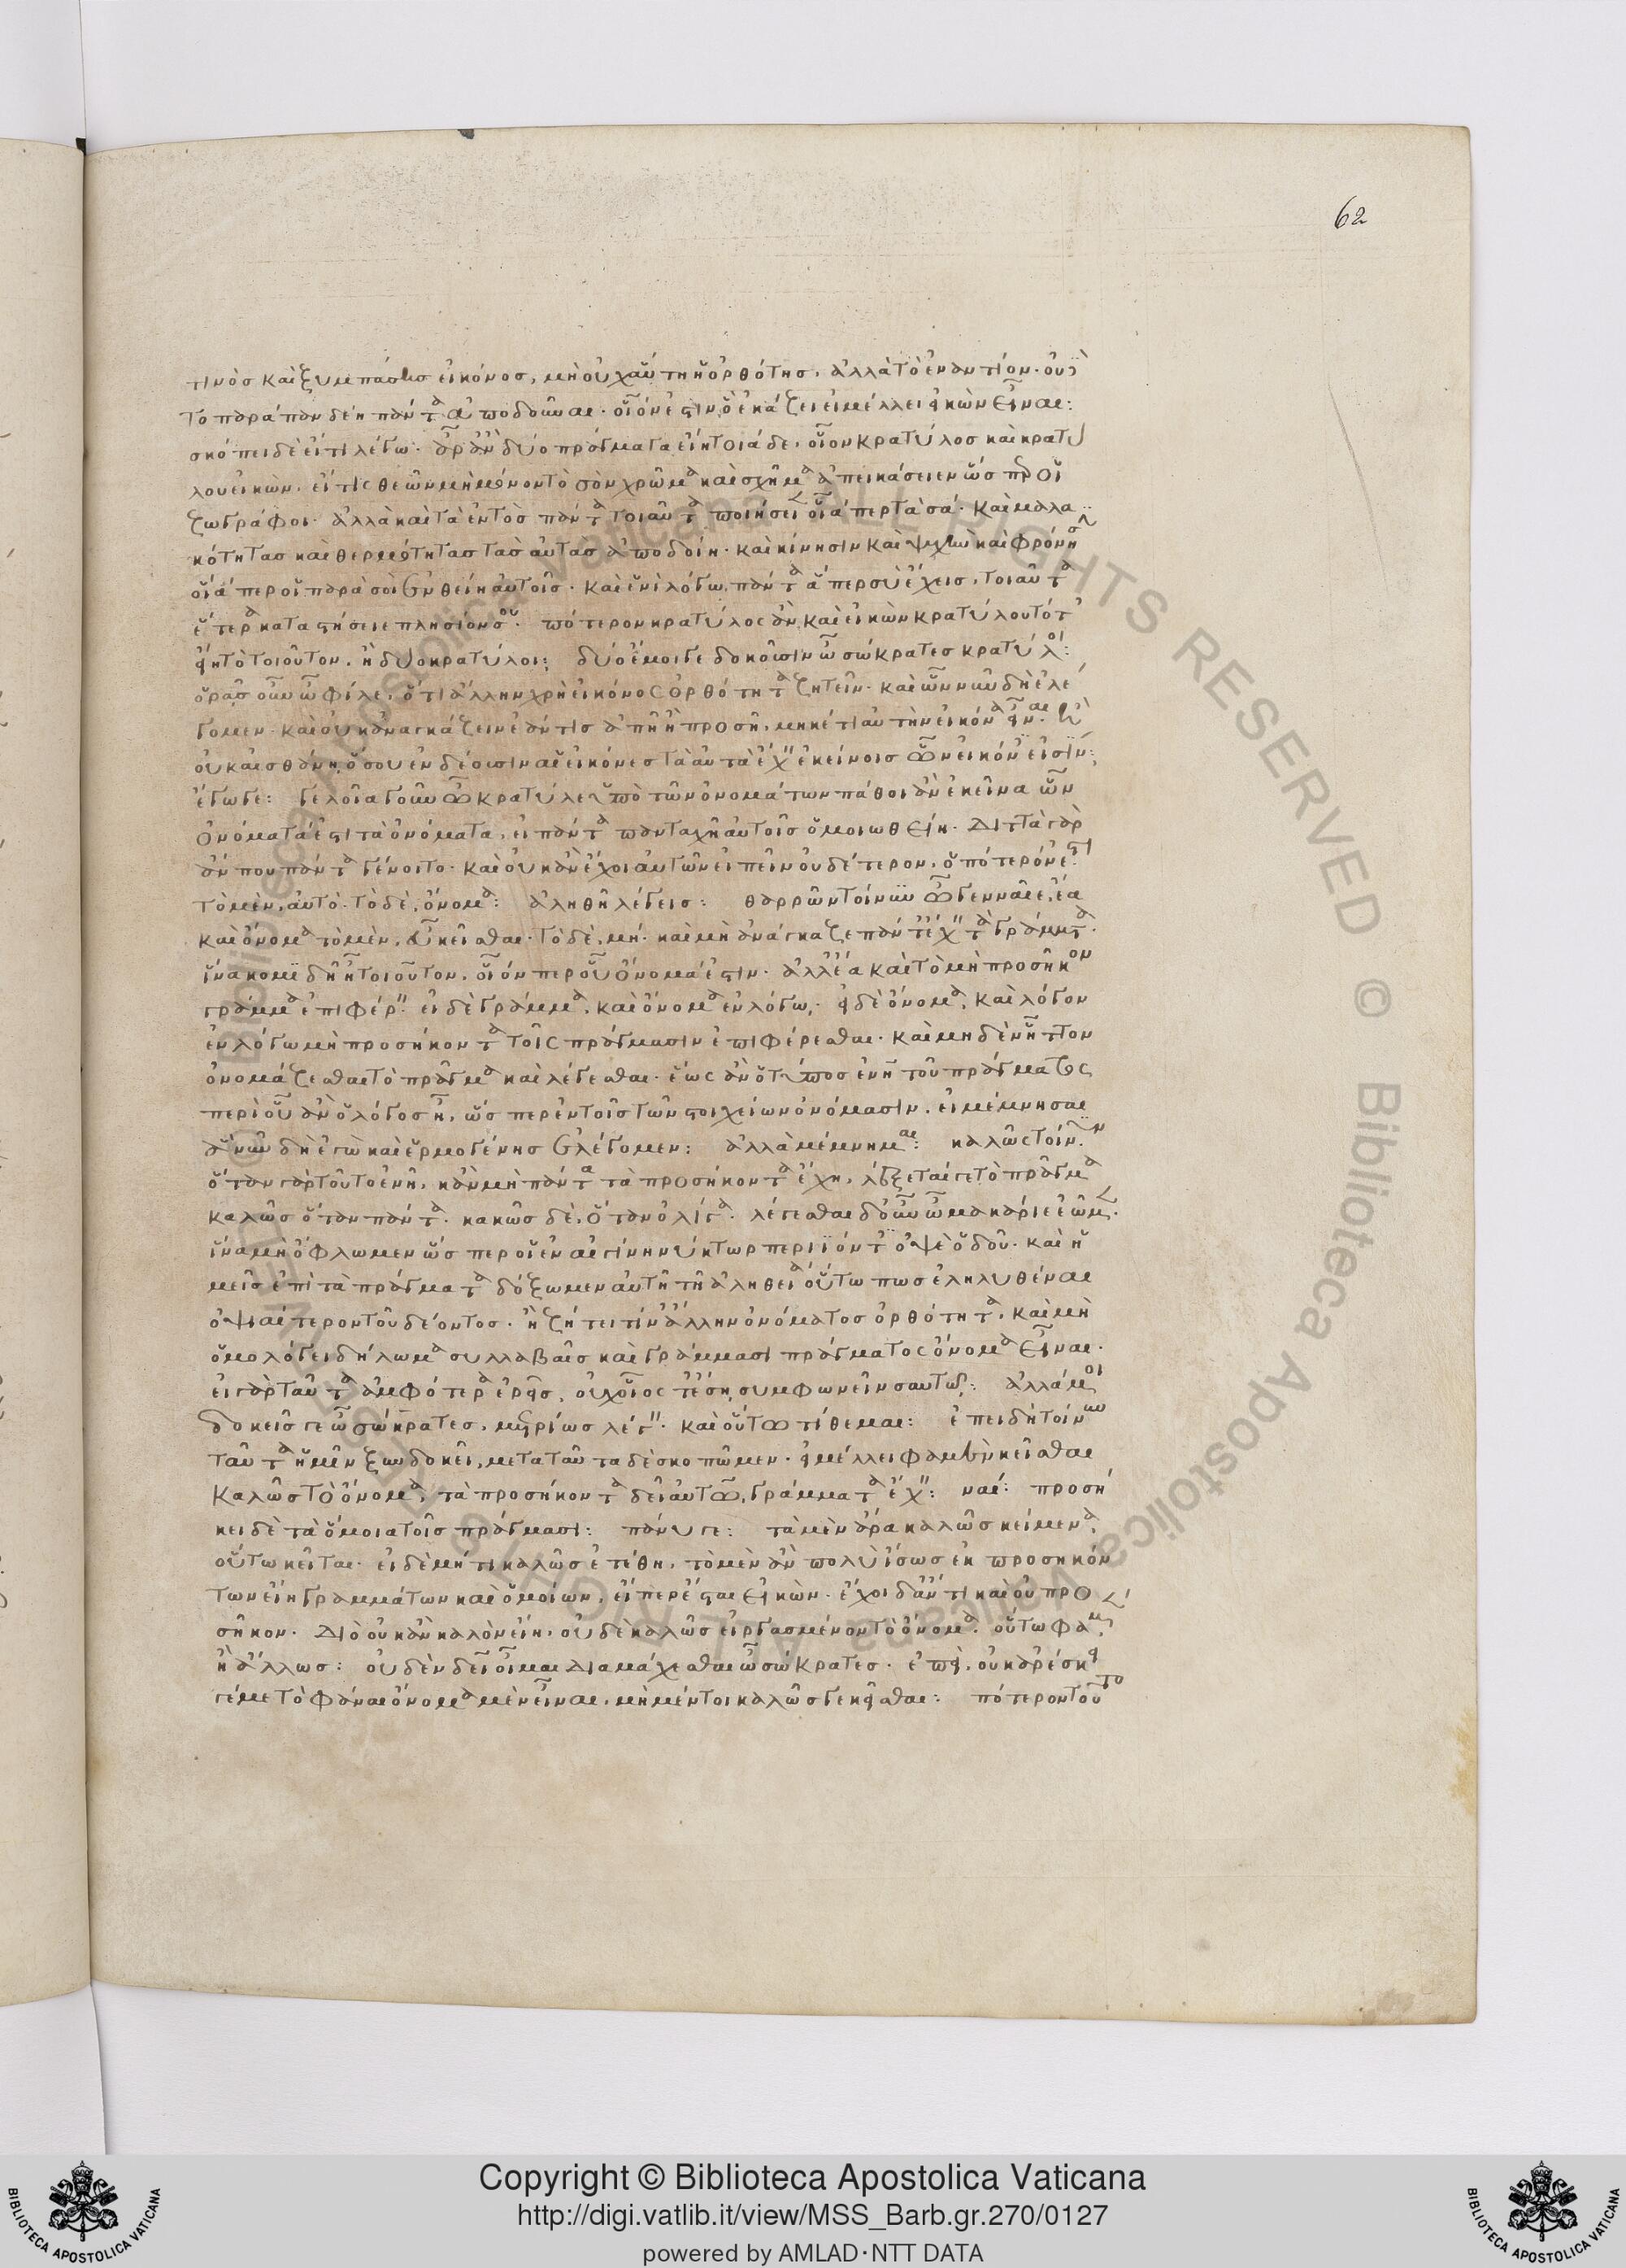 62
τινὸσ καὶ ξυμπάσησ εἰκόνοσ, μὴ οὐχ αὕτη ἡ ὀρθότησ, ἀλλὰ τὸ ἐναντίον. οὐδὲ
το παράπαν δέη πάντα ἀποδοῦναι. οἷόν ἐστιν ὃ εἰκάζει εἰ μέλλει εἰκὼν εἶναι:
σκόπει δὲ εἴ τι λέγω. ἆρ ἂν δύο πράγματα εἴη τοιάδε, οἷον κρατύλοσ καὶ κρατύ
λου εἰκὼν. εἴ τις θεῶν μὴ μόνον τὸ σὸν χρῶμα καὶ σχῆμα ἀπεικάσειεν ὥσπερ οἱ
ζωγράφοι. ἀλλὰ καὶ τὰ ἐντὸσ πάντα τοιαῦτα ποιήσειεν οἷάπερ τὰ σά. καὶ μαλα
κότητασ καὶ θερμότητασ τὰσ αὐτὰσ ἀποδοίη. καὶ κίνησιν καὶ ψυχὴν καὶ φρόνησιν
οἵάπερ ἡ παρὰ σοὶ ἐνθείη αὐτοῖσ. καὶ ἑνὶ λόγω πάντα ἅπερ σὺ ἔχεισ, τοιαῦτα
ἕτερα καταστήσειε πλησίον σοῦ. πότερον κρατύλος ἂν καὶ εἰκὼν κρατύλου τότ
εἴη τὸ τοιοῦτον. ἢ δύο κρατύλοι; δύο ἔμοιγε δοκοῦσιν ὦ σώκρατεσ κρατύλοι:
ὁρᾶσ οὖν ὦ φίλε, ὅτι ἄλλην χρὴ εἰκόνος ὀρθότητα ζητεῖν. καὶ ὧν νῦν δὴ ἐλέ
γομεν. καὶ οὐκ ἀναγκάζειν ἐάν τισ ἀπῆ ἢ προσῆ, μηκέτι αὐτὴν εἰκόνα εἶναι. ἢ
οὐκ αἰσθάνη, ὅσου ἐνδέουσιν αἱ εἰκόνεσ τὰ αὐτὰ ἔχειν ἐκείνοισ ὧν εἰκόνεσ εἰσὶν;
ἔγωγε: γελοῖα γοῦν ὦ κρατύλε ὑπὸ τῶν ὀνομάτων πάθοι ἂν ἐκεῖνα ὧν
ὀνόματά ἐστι τὰ ὀνόματα, εἰ πάντα πανταχῆ αὐτοῖσ ὁμοιωθείη. διττὰ γὰρ
ἄν που πάντα γένοιτο. καὶ οὐκ ἂν ἔχοι αὐτῶν εἰπεῖν οὐδέτερον, ὁπότερόν ἐστι
τὸ μὲν, αὐτό. τὸ δὲ, ὄνομα: ἀληθῆ λέγεισ: θαρρῶν τοίνυν ὦ γενναῖε, ἔα
καὶ ὄνομα τὸ μὲν, εὖ κεῖσθαι. τὸ δὲ, μή. καὶ μὴ ἀνάγκαζε πάντ ἔχειν τὰ γράμματα.
ἵνα κομιδῆ ἦ τοιοῦτον, οἷόνπερ οὗ ὄνομά ἐστιν. ἀλλ ἔα καὶ τὸ μὴ προσῆκον
γράμμα ἐπιφέρειν. εἰ δὲ γράμμα, καὶ ὄνομα ἐν λόγω. εἰ δὲ ὄνομα, καὶ λόγον
ἐν λόγω μὴ προσήκοντα τοῖς πράγμασιν ἐπιφέρεσθαι. καὶ μηδὲν ἧττον
ὀνομάζεσθαι τὸ πρᾶγμα καὶ λέγεσθαι. ἕως ἂν ὁ τύποσ ἐνῆ τοῦ πράγματος
περὶ οὗ ἂν ὁ λόγοσ ἦ, ὥσπερ ἐν τοῖσ τῶν στοιχείων ὀνόμασιν. εἰ μέμνησαι
ἃ νῦν δὴ ἐγὼ καὶ ἑρμογένησ ἐλέγομεν: ἀλλὰ μέμνημαι: καλῶς τοίνυν.
ὅταν γὰρ τοῦτο ἐνῆ, κἂν μὴ πάντα τὰ προσήκοντα ἔχη, λέξεταί γε τὸ πρᾶγμα
καλῶσ ὅταν πάντα. κακῶσ δὲ, ὅταν ὀλίγα. λέγεσθαι δ οὖν ὦ μακάριε ἐῶμεν.
ἵνα μὴ ὄφλωμεν ὥσπερ οἱ ἐν αἰγίνη νύκτωρ περιϊόντεσ ὀψὲ ὁδοῦ. καὶ ἡ
μεῖσ ἐπὶ τὰ πράγματα δόξωμεν αὐτῆ τῆ ἀληθεία οὕτω πωσ ἐληλυθέναι
ὀψιαίτερον τοῦ δέοντοσ. ἢ ζήτει τίν ἄλλην ὀνόματοσ ὀρθότητα, καὶ μὴ
ὁμολόγει δήλωμα συλλαβαῖσ καὶ γράμμασι πράγματος ὄνομα εἶναι.
εἰ γὰρ ταῦτα ἀμφότερα ἐρεῖσ, οὐχ οἷος τ ἔση συμφωνεῖν σαυτῶ: ἀλλά μοι
δοκεῖσ γε ὦ σώκρατεσ, μετρίωσ λέγειν. καὶ οὕτω τίθεμαι: ἐπειδὴ τοίνυν
ταῦτα ἡμῖν ξυνδοκεῖ, μετὰ ταῦτα δὲ σκοπῶμεν. εἰ μέλλει φαμὲν κεῖσθαι
καλῶσ τὸ ὄνομα, τὰ προσήκοντα δεῖ αὐτὸ, γράμματα ἔχειν: ναί: προσή
κει δὲ τὰ ὅμοια τοῖσ πράγμασι: πάνυ γε: τὰ μὲν ἄρα καλῶσ κείμενα,
οὕτω κεῖται. εἰ δὲ μή τι καλῶσ ἐτέθη, τὸ μὲν ἂν πολὺ ἴσωσ ἐκ προσηκόν
των εἴη γραμμάτων καὶ ὁμοίων, εἴπερ ἔσται εἰκὼν. ἔχοι δ ἄν τι καὶ οὐ προ
σῆκον. διὸ οὐκ ἂν καλὸν εἴη, οὐδὲ καλῶσ εἰργασμένον τὸ ὄνομα. οὕτω φαμεν
ἢ ἄλλωσ: οὐδὲν δεῖ οἶμαι διαμάχεσθαι ὦ σώκρατεσ. ἐπεὶ, οὐκ ἀρέσκει
γέ με τὸ φάναι ὄνομα μὲν εἶναι, μὴ μέντοι καλῶσ γε κεῖσθαι: πότερον τοῦτο
Copyright © Biblioteca Apostolica Vaticana
http://digi.vatlib.it/view/MSS_Barb.gr.270/0127
powered by AMLAD·NTT DATA